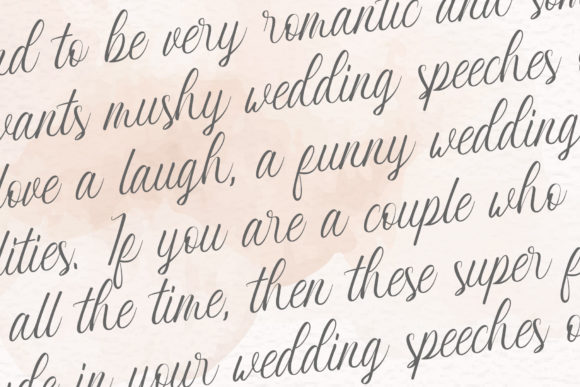 nd to be very romantic and som
wants mushy wedding speeches
love a laugh, a funny wedding
lities. If you are a couple who
all the time, then these super f
ude in your wedding speeches o